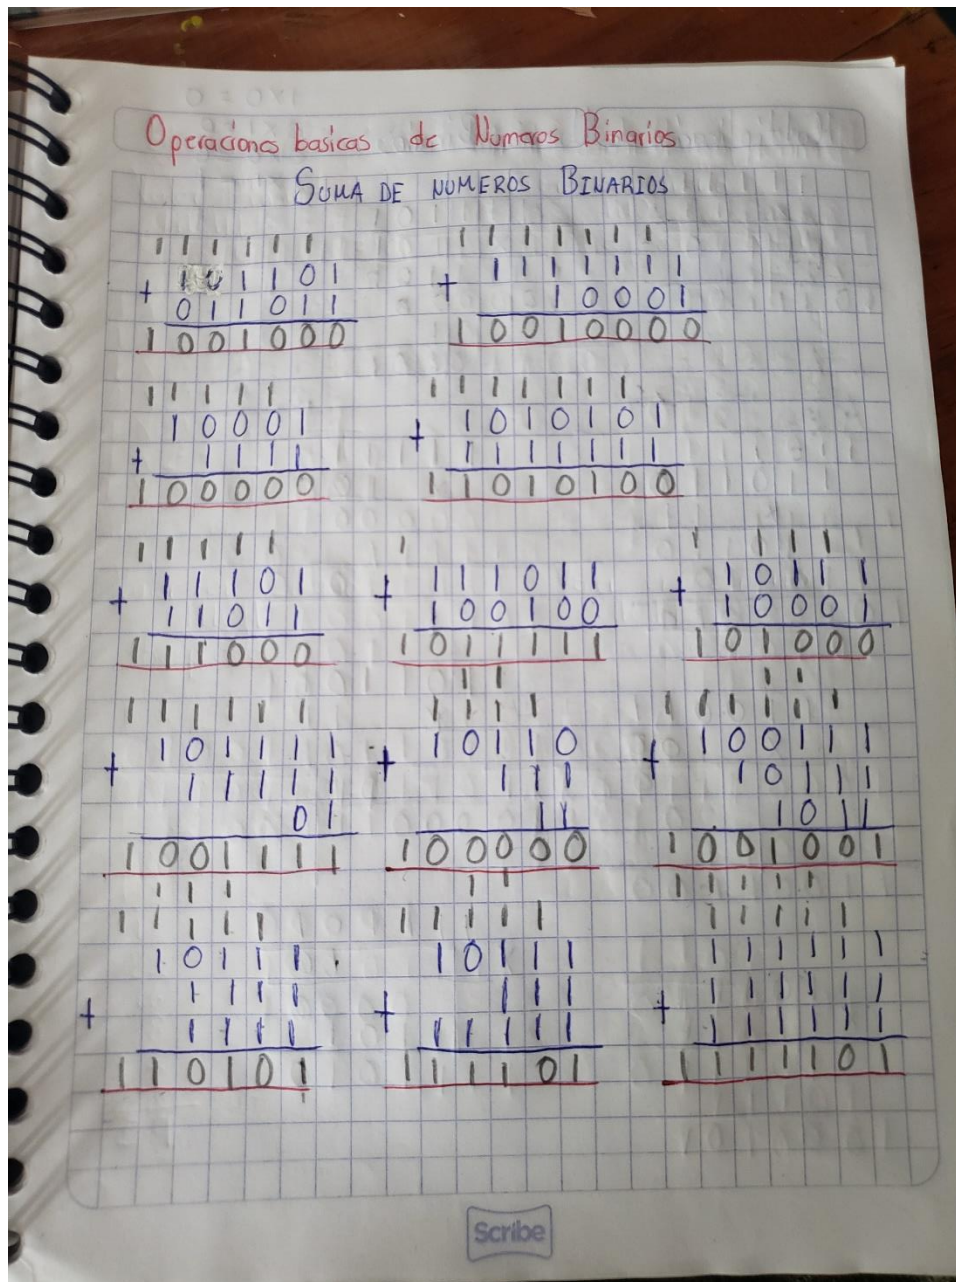 Operaciones basicas de Numeros Binarios
SUMA DE NUMEROS BINARIOS
1 1 1 1 1 1
1 0 1 1 0 1
+ 0 1 1 0 1 1
1 0 0 1 0 0 0
1 1 1 1 1 1 1
1 1 1 1 1 1 1
+ 1 0 0 0 1
1 0 0 1 0 0 0 0
1 1 1 1 1
1 0 0 0 1
+ 1 1 1 1
1 0 0 0 0 0
1 1 1 1 1 1 1
1 0 1 0 1 0 1
+ 1 1 1 1 1 1 1
1 1 0 1 0 1 0 0
1 1 1 1 1
1 1 1 0 1
+ 1 1 0 1 1
1 1 1 0 0 0
1
1 1 1 0 1 1
+ 1 0 0 1 0 0
1 0 1 1 1 1 1
1 1 1 1
1 0 1 1 1
+ 1 0 0 0 1
1 0 1 0 0 0
1 1 1 1 1 1
1 0 1 1 1 1
+ 1 1 1 1 1
0 1
1 0 0 1 1 1 1
1 1
1 1 1 1
1 0 1 1 0
+ 1 1 1
1 1
1 0 0 0 0 0
1 1
1 1 1 1 1 1
1 0 0 1 1 1
+ 1 0 1 1 1
1 0 1 1
1 0 0 1 0 0 1
1 1 1
1 1 1 1 1
1 0 1 1 1
1 1 1 1
+ 1 1 1 1
1 1 0 1 0 1
1 1
1 1 1 1 1
1 0 1 1 1
1 1 1
+ 1 1 1 1 1
1 1 1 1 0 1
1 1 1 1 1
1 1 1 1 1
1 1 1 1 1 1
1 1 1 1 1 1
+ 1 1 1 1 1 1
1 1 1 1 1 0 1
Scribe